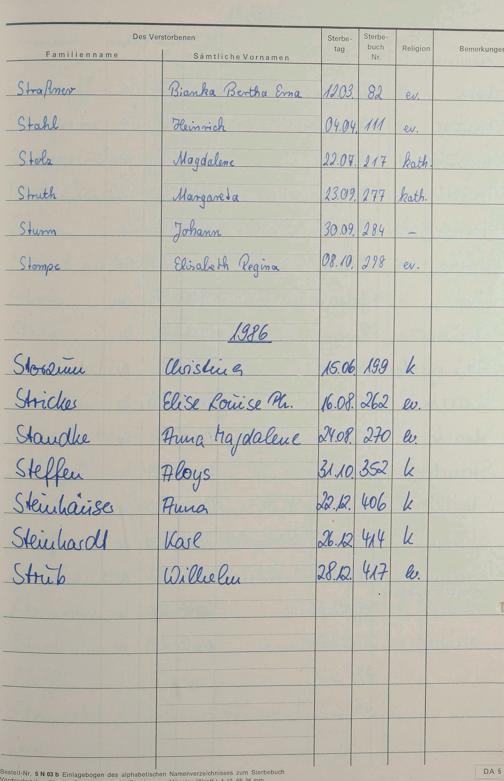 Des Verstorbenen
Familienname Sämtliche Vornamen Sterbe-tag Sterbe-buch Nr. Religion Bemerkungen
Straßner Bianka Bertha Erna 12.03. 82 ev.
Stahl Heinrich 04.04. 111 ev.
Stolz Magdalene 22.07. 217 kath.
Struth Margareta 23.09. 277 kath.
Sturm Johann 30.09. 284 –
Stompe Elisabeth Regina 08.10. 298 ev.
1986
Christina 15.06 199 k
Stricker Elise Louise Ph. 16.08. 262 ev.
Staudke Anna Magdalene 24.08. 270 ev.
Steffen Aloys 31.10. 352 k
Steinhäuser Anna 22.12. 406 k
Steinhardt Karl 26.12 414 k
Strub Wilhelm 28.12. 417 ev.
Bestell-Nr. 5 N 03 b Einlagebogen des alphabetischen Namenverzeichnisses zum Sterbebuch
DA 5